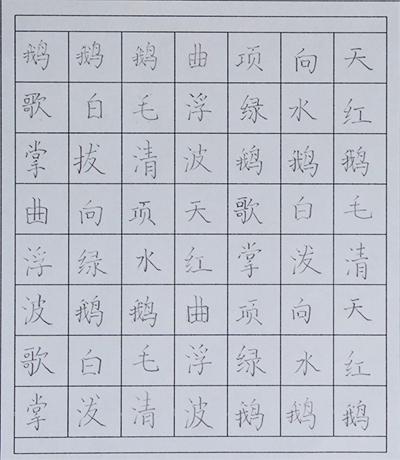 鹅鹅鹅曲项向天
歌白毛浮绿水红
掌拔清波鹅鹅鹅
曲向项天歌白毛
浮绿水红掌泼清
波鹅鹅曲项向天
歌白毛浮绿水红
掌泼清波鹅鹅鹅